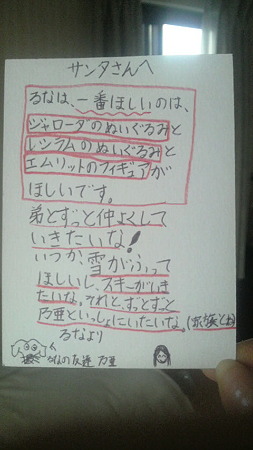 サンタさんへ
るなは、一番ほしいのは、
ジャローダのぬいぐるみと
レシラムのぬいぐるみと
エムリットのフィギュアが
ほしいです。
弟とずっと仲よくして
いきたいな!
いつか、雪がふって
ほしいし、スキーがいき
たいな。それと、ずっとずっと
乃亜といっしょにいたいな。(家族とも)
るなより
るなの友達 乃亜